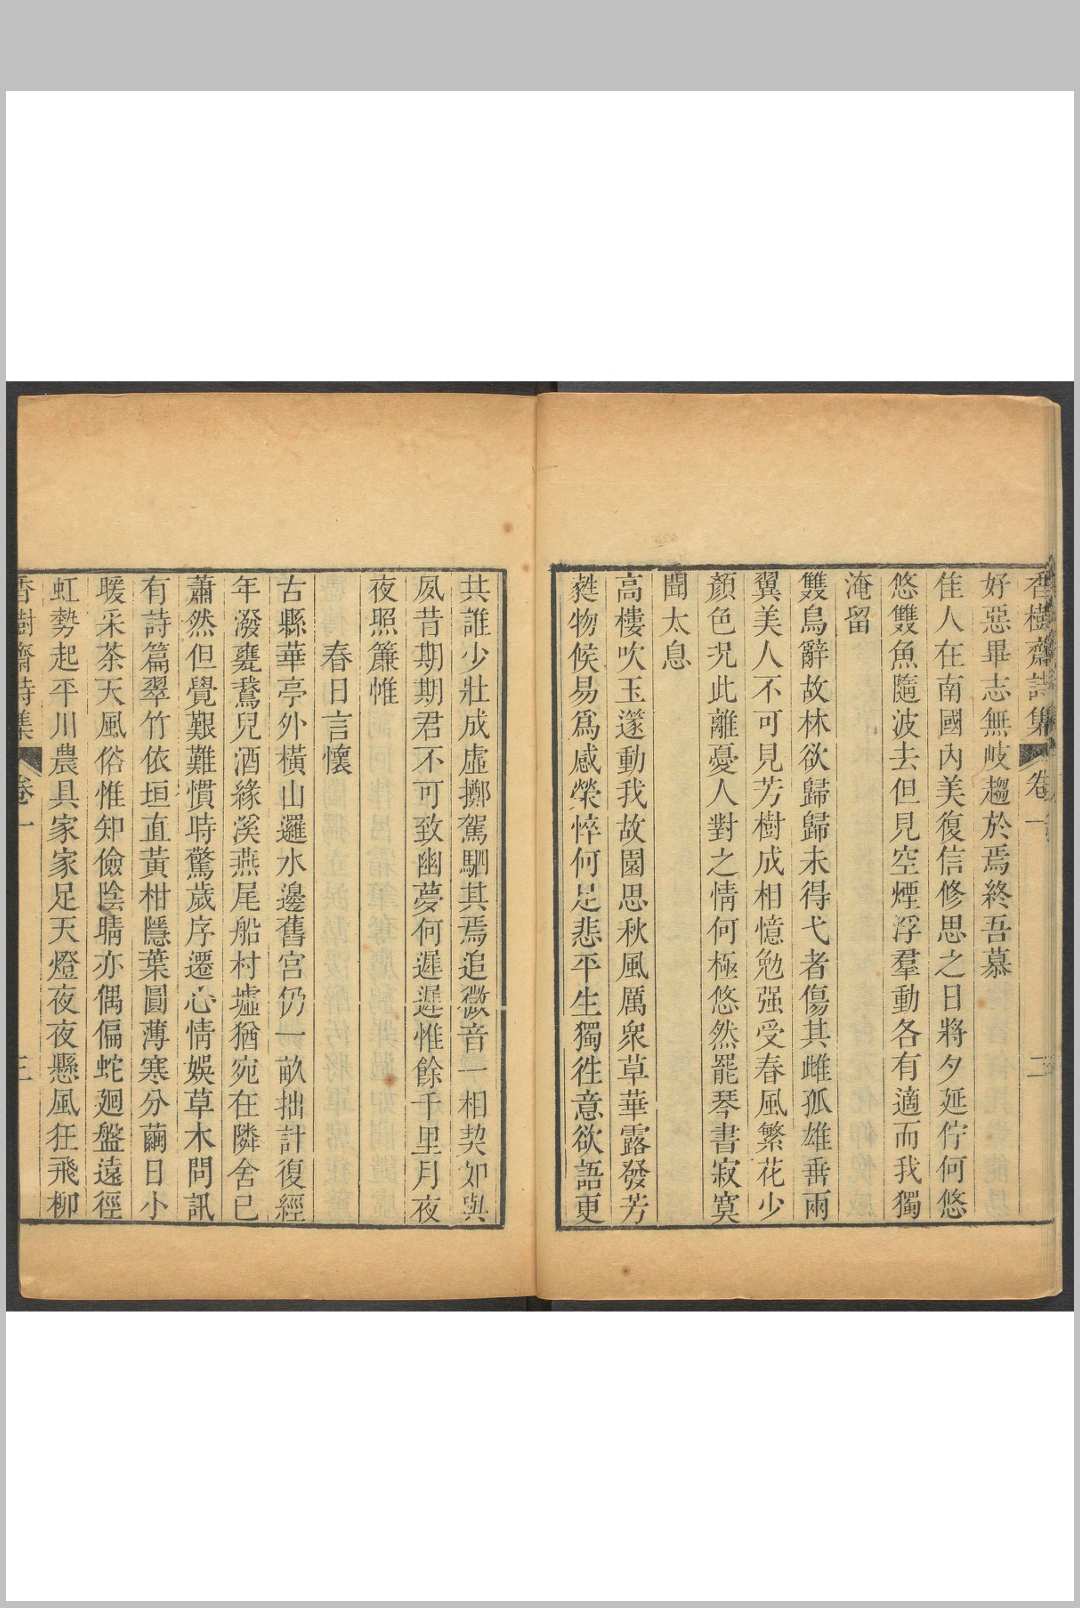 香樹齋詩集 卷一 二
好惡畢志無岐趨於焉終吾慕
佳人在南國內美復信修思之日將夕延佇何悠
悠雙魚隨波去但見空煙浮羣動各有適而我獨
淹留
雙鳥辭故林欲歸歸未得弋者傷其雌孤雄垂雨
翼美人不可見芳樹成相憶勉强受春風繁花少
顏色况此離憂人對之情何極悠然罷琴書寂寞
聞太息
高樓吹玉篴動我故園思秋風厲衆草華露發芳
蕤物候易爲感榮悴何足悲平生獨徃意欲語更
共誰少壯成虛擲駕駟其焉追微音一相契如與
夙昔期期君不可致幽夢何遲遲惟餘千里月夜
夜照簾帷
春日言懷
古縣華亭外橫山邏水邊舊宮仍一畝拙計復經
年潑甕鵞兒酒緣溪燕尾船村墟猶宛在隣舍已
蕭然但覺艱難慣時驚歲序遷心情娛草木問訊
有詩篇翠竹依垣直黃柑隱葉圓薄寒分繭日小
暖采茶天風俗惟知儉陰晴亦偶偏蛇廻盤遠徑
虹勢起平川農具家家足天燈夜夜懸風狂飛柳
香樹齋詩集 卷一 三